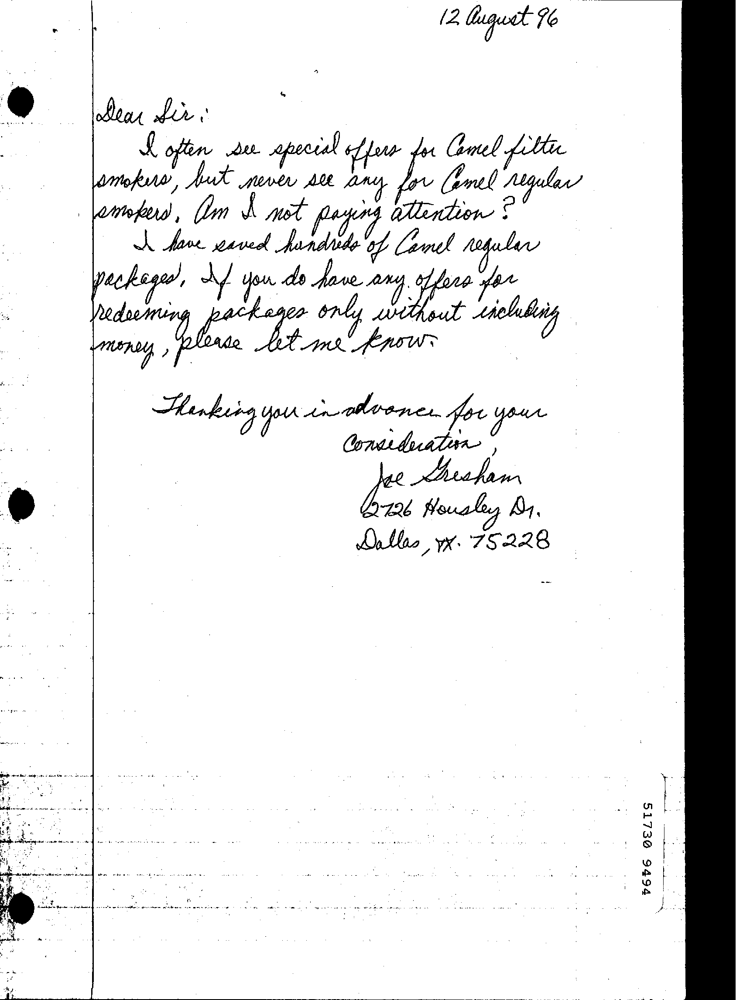 12 August 96
Dear Sir:
I often see special offers for Camel filter
smokers, but never see any for Camel regular
smokers. Am I not paying attention?
I have saved hundreds of Camel regular
packages. If you do have any offers for
redeeming packages only without including
money, please let me know.
Thanking you in advance for your
consideration,
Joe Gresham
2726 Housley Dr.
Dallas, TX. 75228
51730 9494